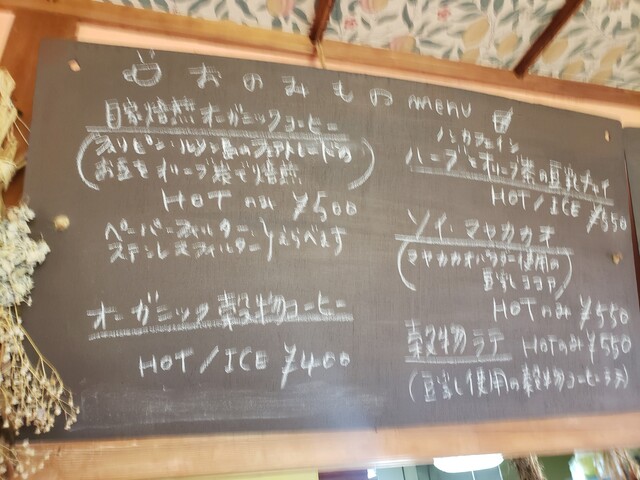 おのみもの menu
自家焙煎 オーガニックコーヒー
(フィリピン・ルソン島のフェアトレードの
お豆をオリーブ炭で焙煎)
HOT のみ ¥500
ペーパーフィルター
ステンレスフィルター }えらべます
オーガニック穀物コーヒー
HOT / ICE ¥400
ノンカフェイン
ハーブとオリーブ茶の豆乳チャイ
HOT / ICE ¥650
ソイ・マヤカカオ
(マヤカカオパウダー使用の
豆乳ココア)
HOT のみ ¥550
穀物ラテ HOTのみ ¥550
(豆乳使用の穀物コーヒーラテ)